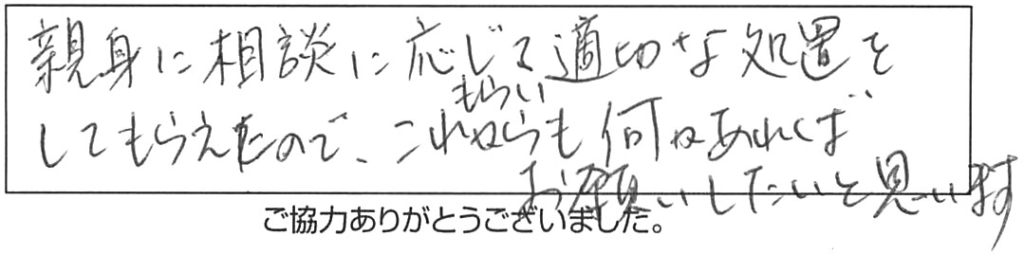 親身に相談に応じて適切な処置を
もらい
してもらえたので、これからも何かあれば
お願いしたいと思います
ご協力ありがとうございました。